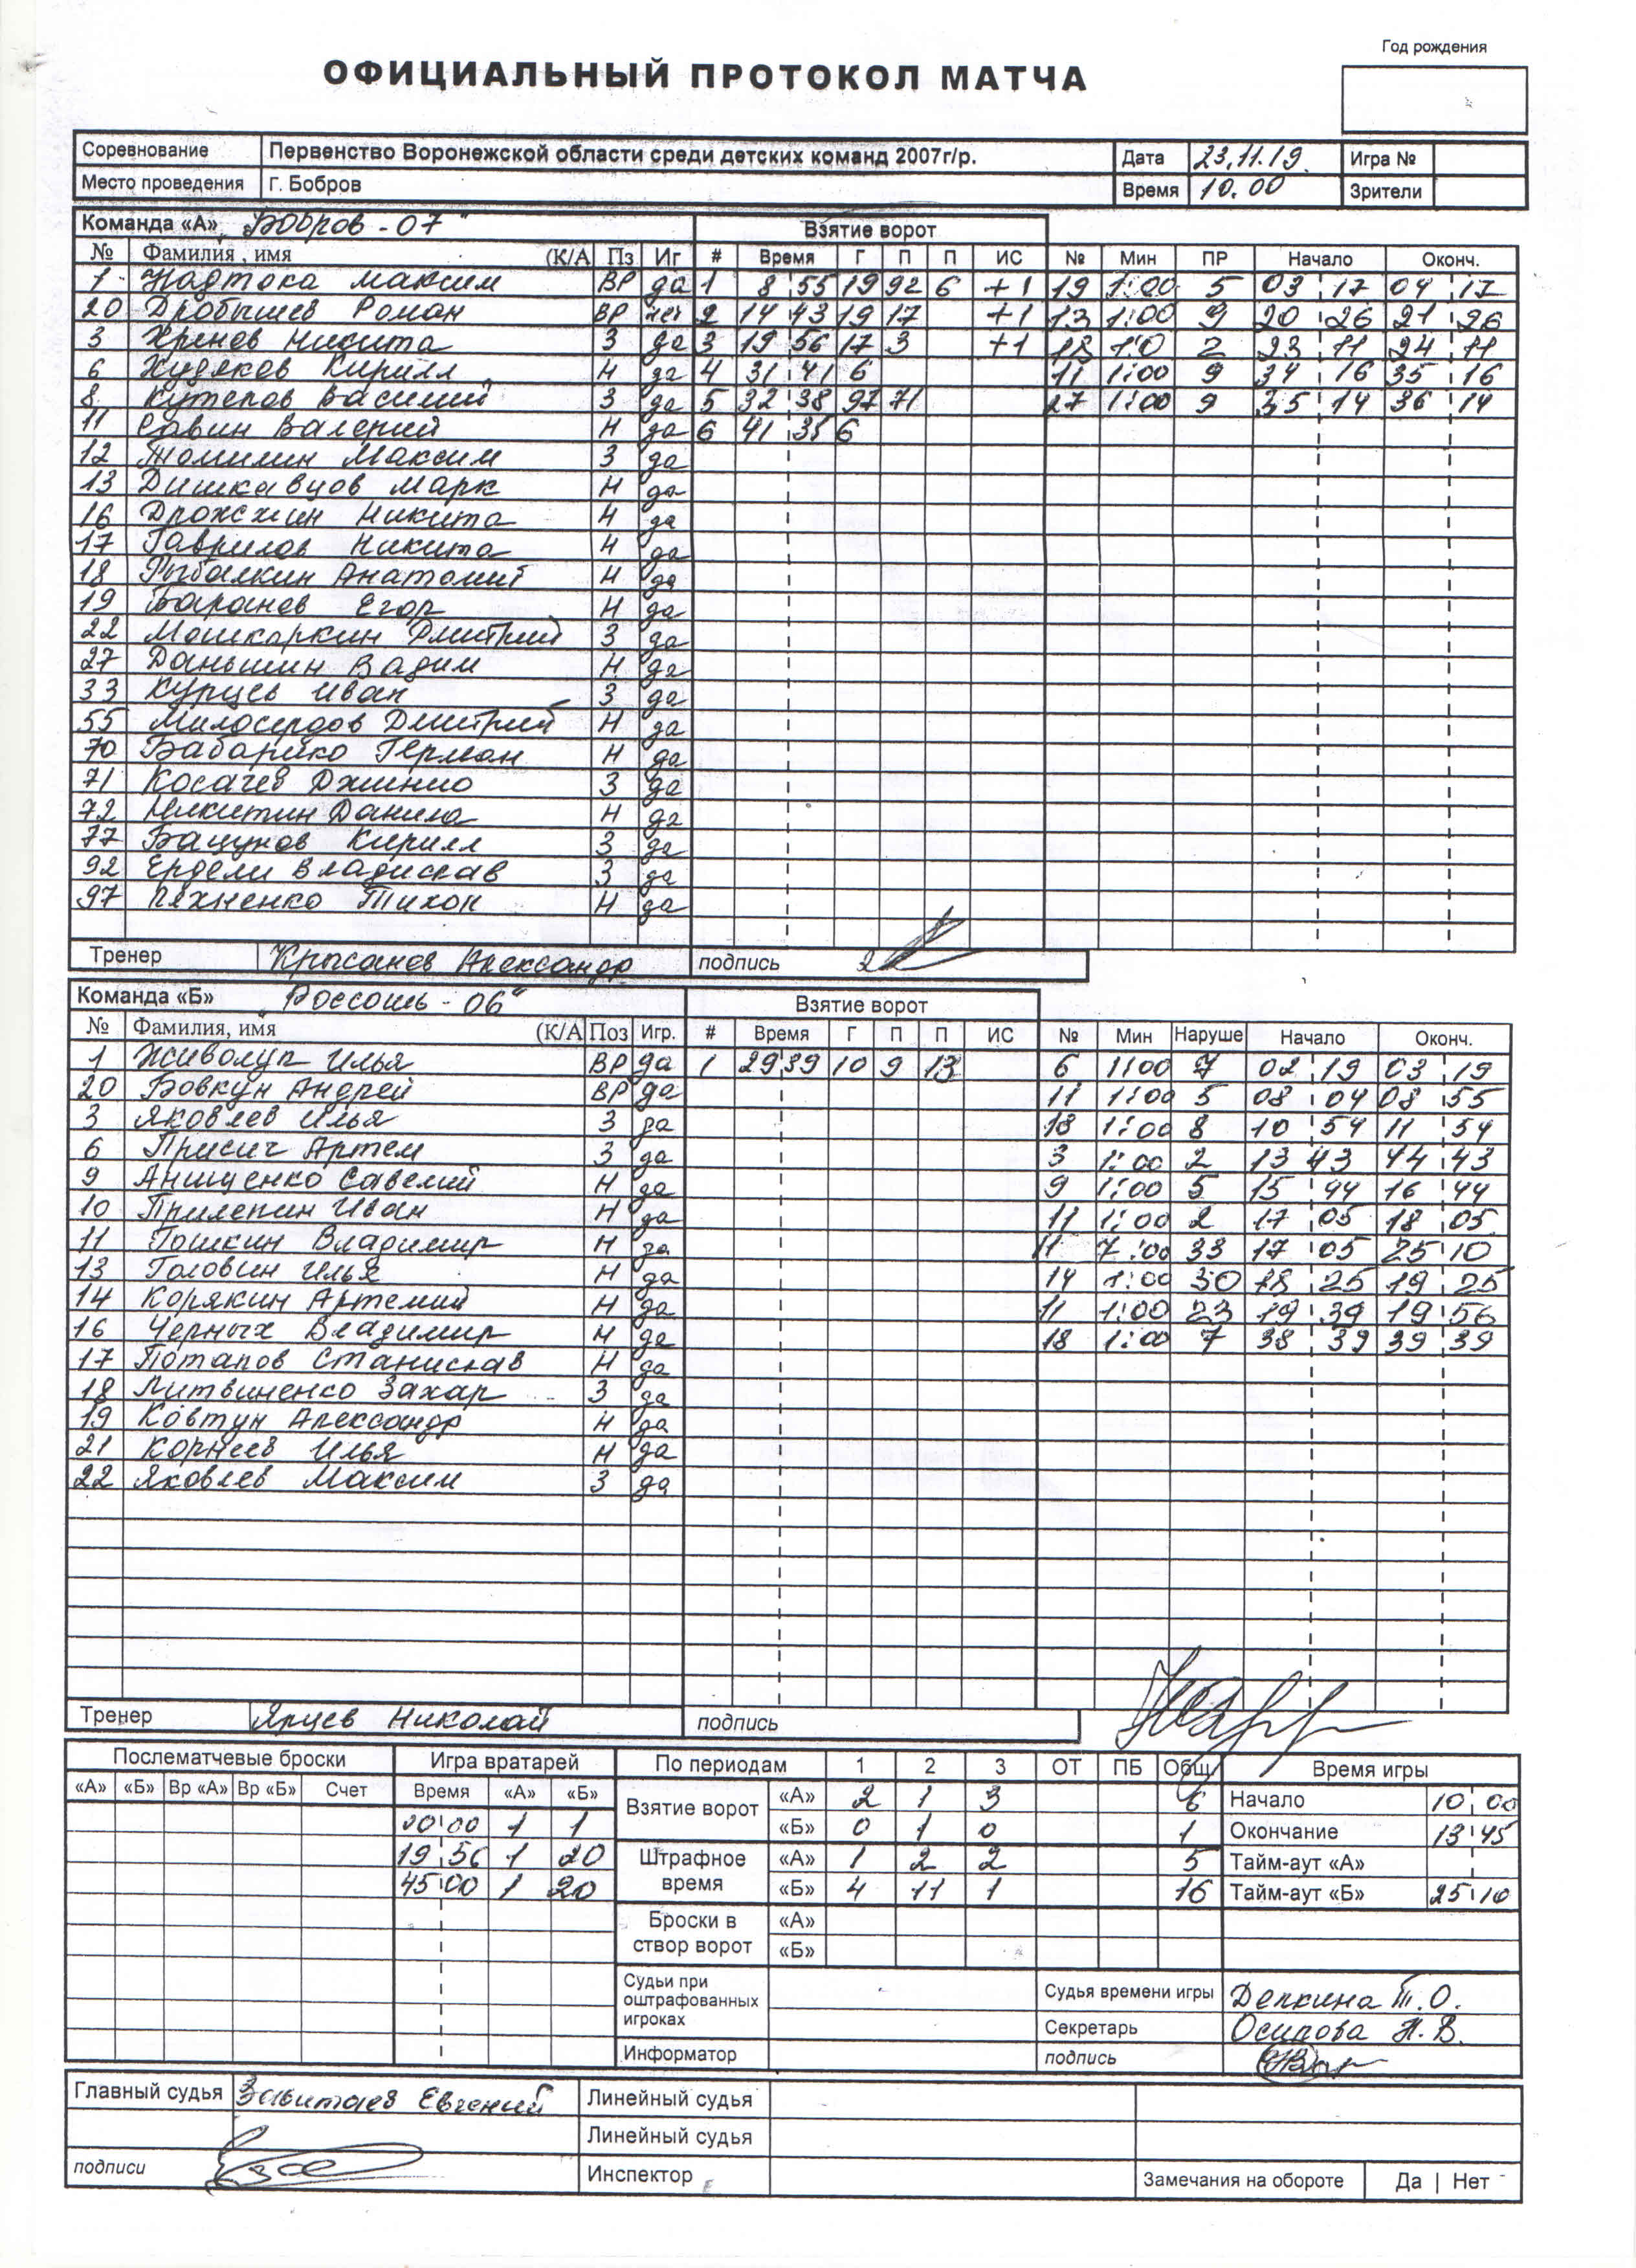 Год рождения
ОФИЦИАЛЬНЫЙ ПРОТОКОЛ МАТЧА
Соревнование Первенство Воронежской области среди детских команд 2007г/р. Дата 23.11.19. Игра №
Место проведения Г. Бобров Время 10.00 Зрители
Команда «А» "Бобров - 07" Взятие ворот
№ Фамилия , имя (К/А Пз Иг # Время Г П П ИС № Мин ПР Начало Оконч.
1 Надтока Максим ВР да 1 8 55 19 92 6 +1 19 1:00 5 03 17 04 17
20 Дробышев Роман ВР нет 2 14 43 19 17 +1 13 1:00 9 20 26 21 26
3 Хренов Никита З да 3 19 56 17 3 +1 18 1:0 2 23 11 24 11
6 Худяков Кирилл Н да 4 31 41 6 11 1:00 9 34 16 35 16
8 Кутепов Василий З да 5 32 38 97 71 27 1:00 9 35 14 36 14
11 Савин Валерий Н да 6 41 35 6
12 Томилин Максим З да
13 Дишкавцов Марк Н да
16 Дрожжин Никита Н да
17 Гаврилов Никита Н да
18 Рыбалкин Анатолий Н да
19 Баранов Егор Н да
22 Мошкаркин Дмитрий З да
27 Даньшин Вадим Н да
33 Курцев Иван З да
55 Милосердов Дмитрий Н да
70 Бабарико Герман Н да
71 Косачев Джинио З да
72 Никитин Данила Н да
77 Бацунов Кирилл З да
92 Ердели Владислав З да
97 Пяхненко Тихон Н да
Тренер Крысанов Александр подпись
Команда «Б» "Россошь - 06" Взятие ворот
№ Фамилия, имя (К/А Поз Игр. # Время Г П П ИС № Мин Наруше Начало Оконч.
1 Живолуп Илья ВР да 1 29 39 10 9 13 6 1:00 7 02 19 03 19
20 Бовкун Андрей ВР да 11 1:00 5 08 04 08 55
3 Яковлев Илья З да 18 1:00 8 10 54 11 54
6 Присич Артем З да 3 1:00 2 13 43 14 43
9 Анищенко Савелий Н да 9 1:00 5 15 44 16 44
10 Прилепин Иван Н да 11 1:00 2 17 05 18 05
11 Гошкин Владимир Н да 11 7:00 33 17 05 25 10
13 Головин Илья Н да 14 1:00 30 18 25 19 25
14 Корякин Артемий Н да 11 1:00 23 19 39 19 56
16 Черных Владимир Н да 18 1:00 7 38 39 39 39
17 Потапов Станислав Н да
18 Литвиненко Захар З да
19 Ковтун Александр Н да
21 Корнеев Илья Н да
22 Яковлев Максим З да
Тренер Ярцев Николай подпись
Послематчевые броски Игра вратарей По периодам 1 2 3 ОТ ПБ Общ. Время игры
«А» «Б» Вр «А» Вр «Б» Счет Время «А» «Б» Взятие ворот «А» 2 1 3 6 Начало 10 00
00 00 1 1 «Б» 0 1 0 1 Окончание 13 45
19 56 1 20 Штрафное время «А» 1 2 2 5 Тайм-аут «А»
45 00 1 20 «Б» 4 11 1 16 Тайм-аут «Б» 25 10
Броски в створ ворот «А»
«Б»
Судьи при оштрафованных игроках Судья времени игры Депкина Т.О.
Секретарь Осипова Н.В.
Информатор подпись
Главный судья Евгений Линейный судья
Линейный судья
подписи Инспектор Замечания на обороте Да | Нет